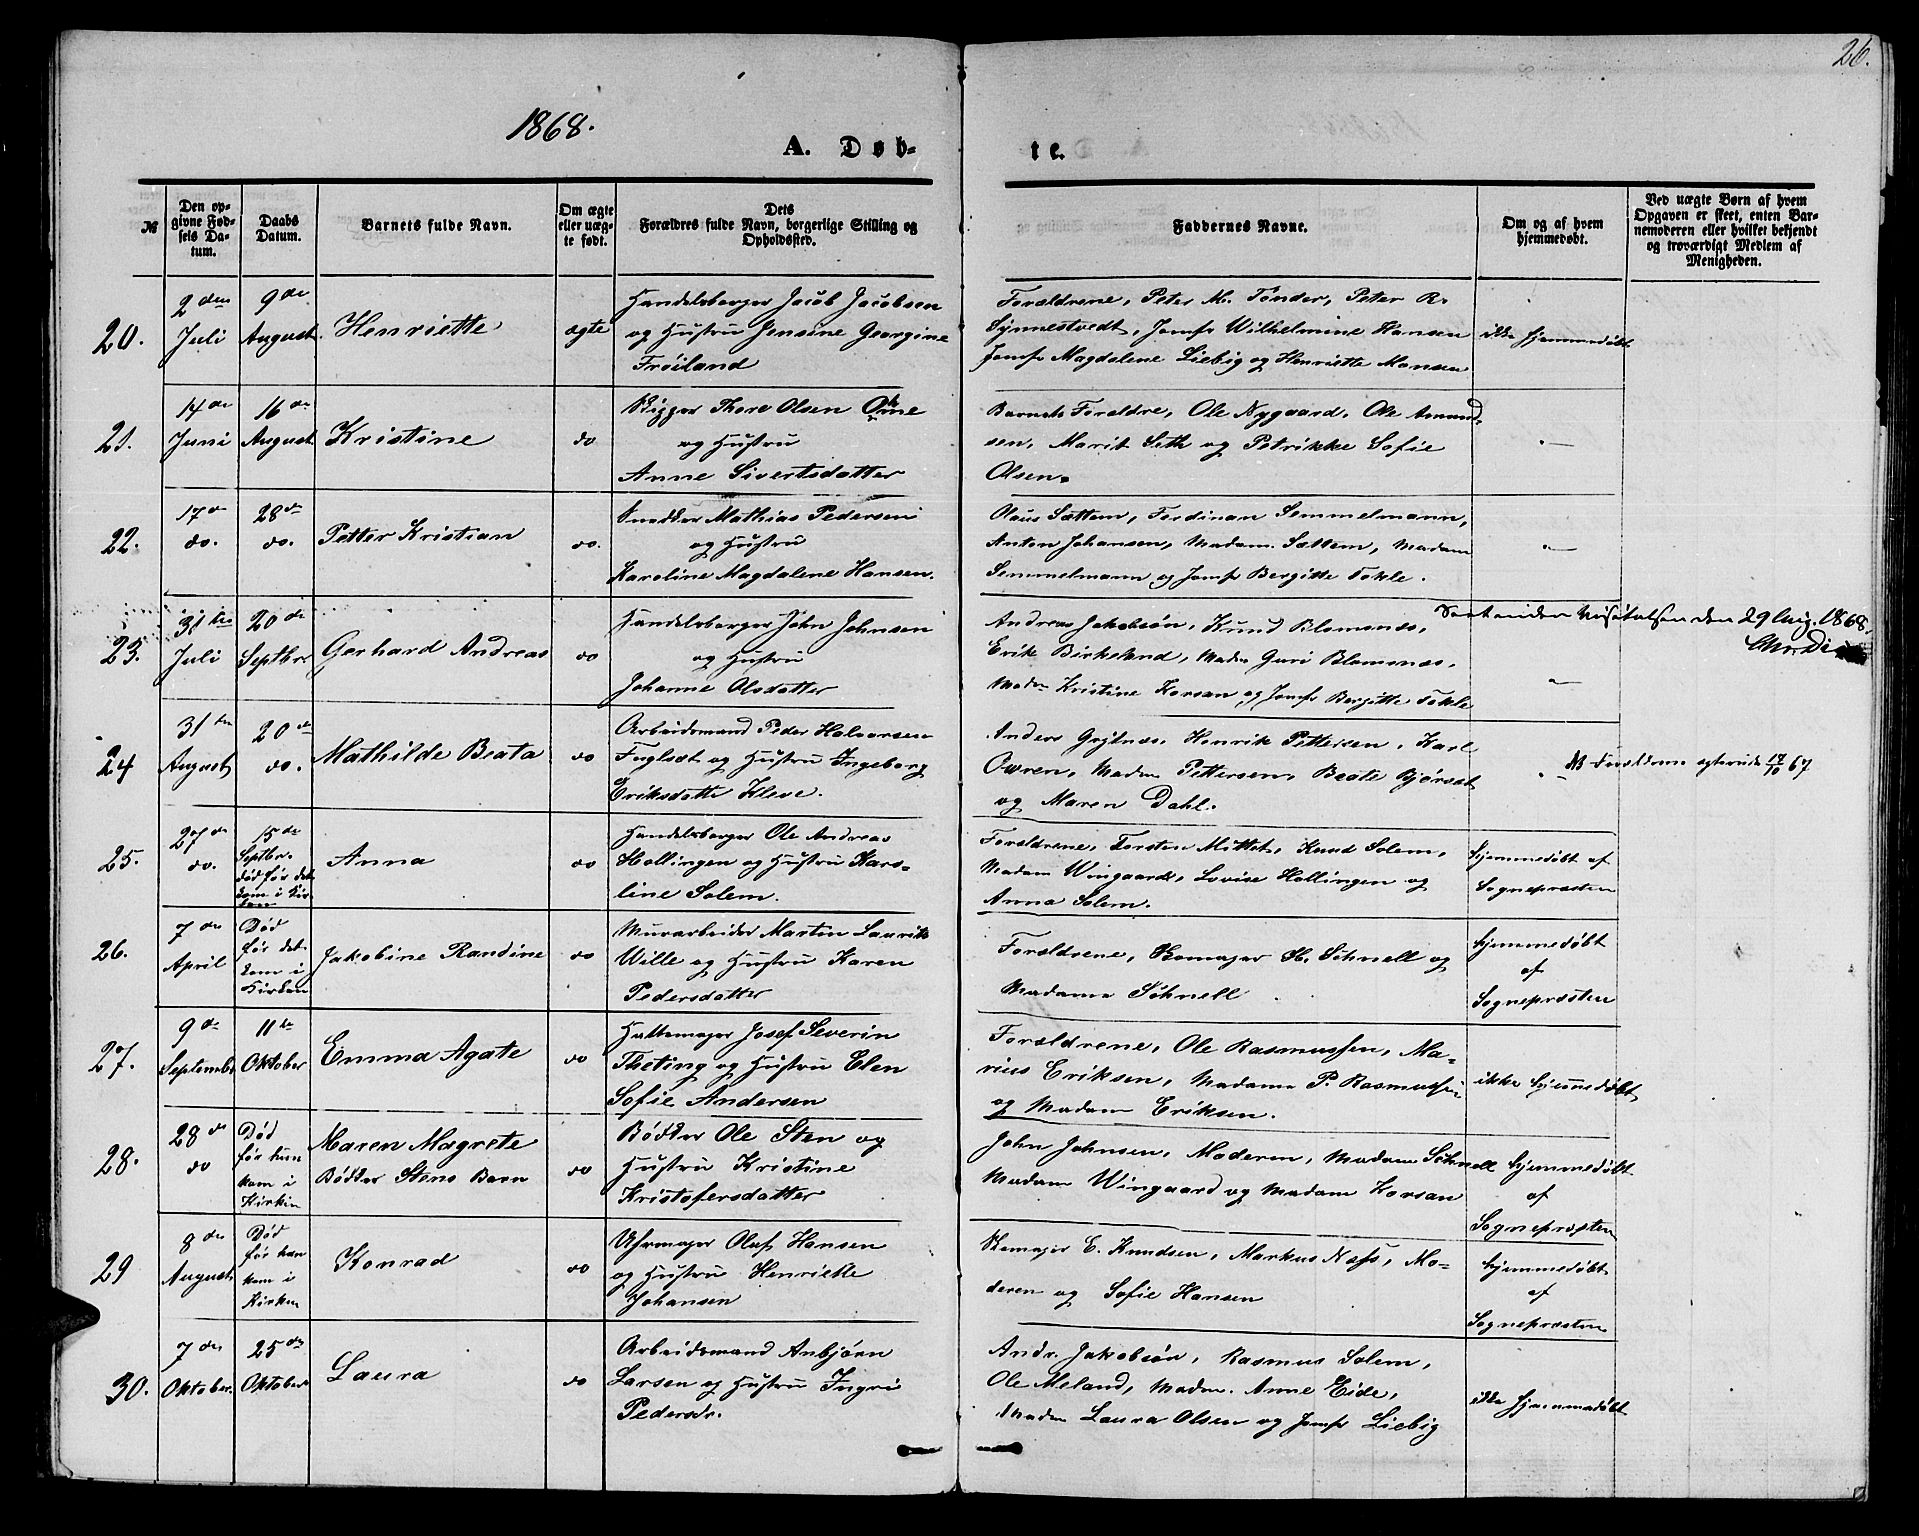 26.
1868.
A. Døb-
te.
№
Den op-
givne Fød-
sels Da-
tum.
Daabs
Datum.
Barnets fulde Navn.
Om ægte
eller uæg-
te født.
Dets
Forældres fulde Navn, borgerlige Stilling og
Opholdssted.
Faddernes Navne.
Om og af hvem
hjemmedøbt.
Ved uægte Børn af hvem
Opgaven er skeet, enten Bar-
nemoderen eller hvilket bekjendt
og troværdigt Medlem af
Menigheden.
20.
2den
Juli
9de
August.
Henriette
ægte
Handelsborger Jacob Jacobsen
og Hustru Jensine Georgine
Frøiland
Forældrene, Peter M. Tønder, Peter R.
Synnestvedt, Jomfr Wilhelmine Hansen
Jomfr Magdalene Liebig og Henriette Monsen
ikke hjemmedøbt
21.
14de
Juni
16de
August
Kristine
do
Rigger Thore Olsen
og Hustru
Anne Sivertsdatter
Barnets Forældre, Ole Nygaard, Ole Amund-
sen, Marit Seth og Petrikke Sofie
Olsen.
"
22.
17de
do.
28de
do.
Petter Kristian
do.
Snedker Mathias Pedersen
og Hustru
Karoline Magdalene Hansen.
Olaus Sættem, Ferdinan Semmelmann,
Anton Johansen, Madam. Sættem, Madam
Semmelmann og Jomfr Bergitte Tokle.
"
23.
31te
Juli
20de
Septbr
Gerhard Andreas
do
Handelsborger John Johnsen
og Hustru
Johanne Olsdatter
Andreas Jakobsøn, Knud Blomsnes,
Erik Birkeland, Madm Guri Blomsnæs,
Madm Kristine Korsan og Jomfr Bergitte Tokle
"
den 29 Aug. 1868.
24
31te
August
20de
do.
Mathilde Beata
do
Arbeidsmand Peder Halvorsen
Fuglset og Hustru Ingeborg
Eriksdatte Kleve.
Anders Grytnes, Henrik Pettersen, Karl
Owren, Madam Pettersen, Beate Bjørset
og Maren Dahl.
"
NB Forældrene ægteviede 17/10 67
25.
27de
do.
15de
Septbr.
død før det
kom i Kir-
ken
Anna
do
Handelsborger Ole Andreas
Hollingen og Hustru Kars-
line Solem.
Forældrene, Torsten Mittet, Knud Solem,
Madam Wingaard, Lovise Hollingen og
Anna Solem.
hjemmedøbt af
Sognepræsten
26.
7de
April
Død
før det
kom i
Kirken
Jakobine Randine
do
Murarbeider Martin Laurits
Wille og Hustru Karen
Pedersdatter
Forældrene, Komager H. Schnell og
Madame Schnell
hjemmedøbt
af
Sognepræsten
27.
9de
Septembr
11te
Oktober
Emma Agate
do
Hattemager Josef Severin
Theting og Hustru Elen
Sofie Andersen
Forældrene, Ole Rasmussen, Ma-
rius Eriksen, Madame P. Rasmussen
og Madam Eriksen.
ikke hjemmedøbt
28.
28de
do
Død
før hun
kom i
Kirken
Maren Magrete
Bødker Stens Barn
do
Bødker Ole Sten og
Hustru Kristine
Kristofersdatter
John Johnsen, Moderen, Madam Schnell
Madam Wingaard og Madam Korsan
hjemmedøbt
af
Sognepræsten
29
8de
August
Død
før han
kom i
Kirken
Konrad
do
Uhrmager Oluf Hansen
og Hustru Henriette
Johansen
Komager E. Knudsen, Markus Næss, Mo-
deren og Sofie Hansen
hjemmedøbt
af
Sognepræsten
30.
7de
Oktober.
25de
Oktober
Laura
do
Arbeidsmand Anbjørn
Larsen og Hustru Ingri
Pedersdr.
Andr. Jakobsøn, Rasmus Solem,
Ole Meland, Madm. Anne Eide,
Madm Laura Olsen og Jomfr Liebig
ikke hjemmedøbt